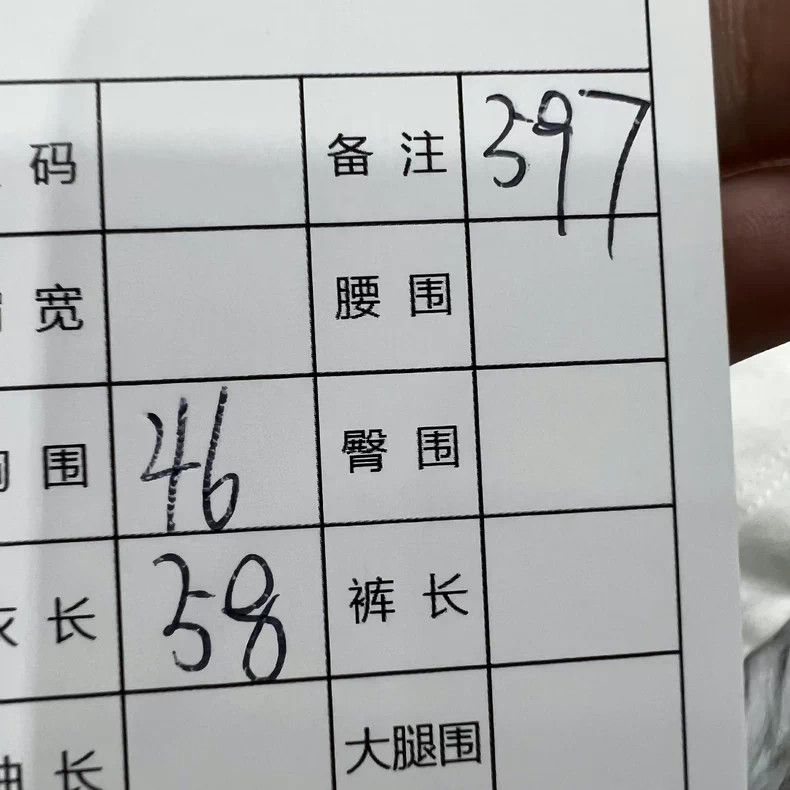 码 备注 397
宽 腰围
围 46 臀围
衣长 58 裤长
长 大腿围